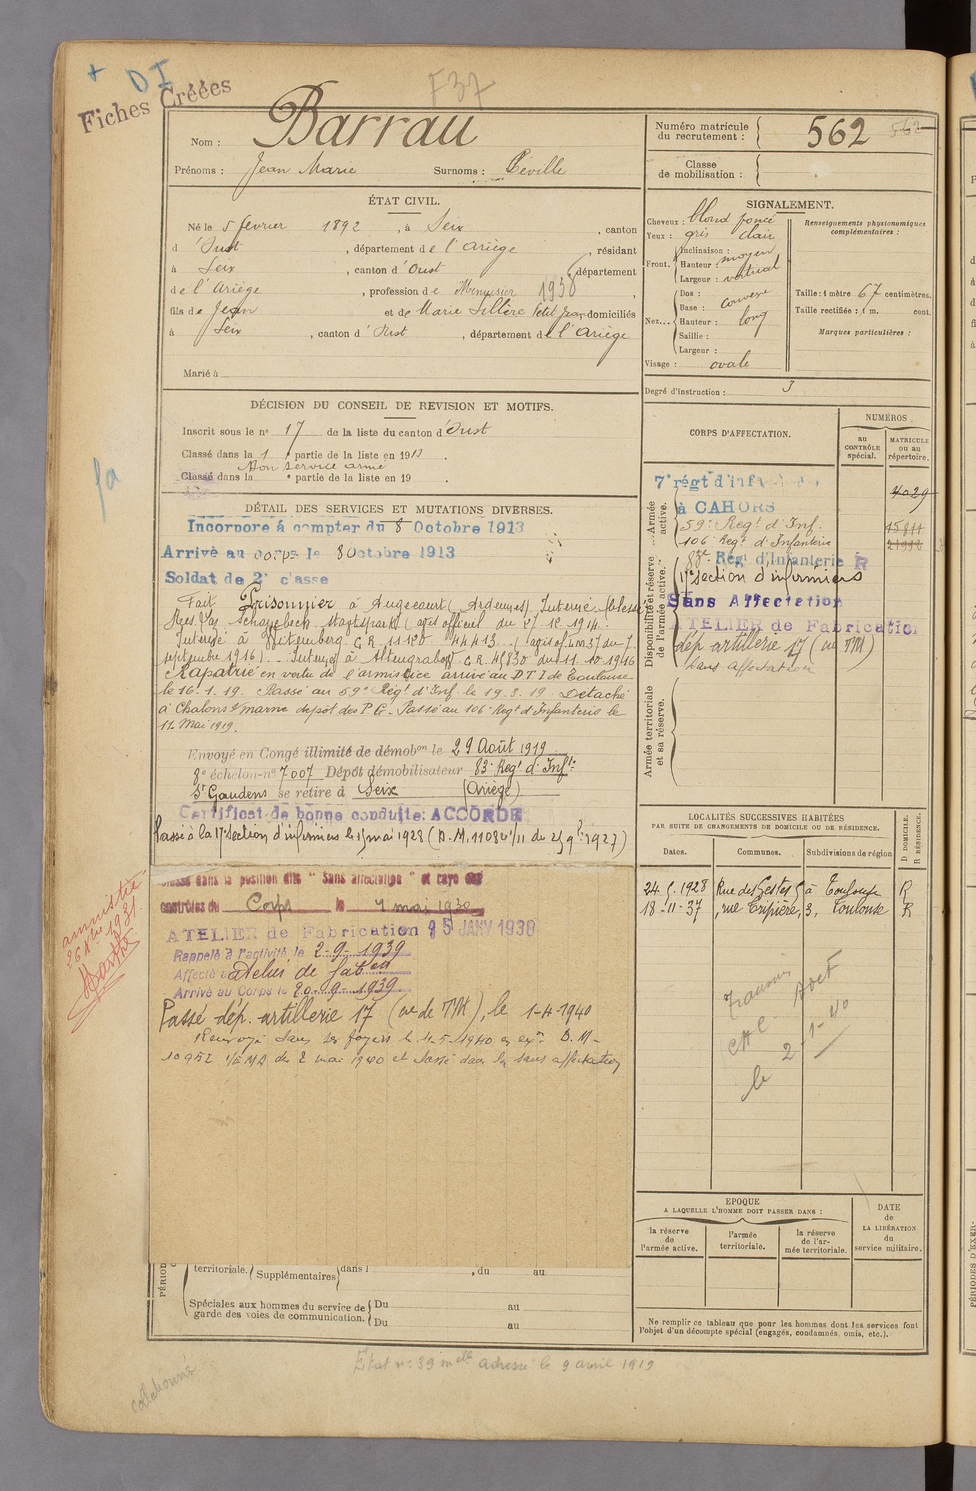 + DI
Fiches Créées
F37
Nom : Barrau
Prénoms : Jean Marie Surnoms : Céville
Numéro matricule du recrutement : 562 562
Classe de mobilisation :
ÉTAT CIVIL.
Né le 5 février 1892, à Seix, canton
d'Oust, département de l'Ariège, résidant
à Seix, canton d'Oust, département
de l'Ariège, profession de Menuisier 1938,
fils de Jean et de Marie Sillère Petit Jean domiciliés
à Seix, canton d'Oust, département de l'Ariège
Marié à
SIGNALEMENT.
Cheveux : blond foncé
Yeux : gris clair
Front. Inclinaison : moyen
Hauteur : vertical
Largeur :
Nez... Dos :
Base : convexe
Hauteur : long
Saillie :
Largeur :
Visage : ovale
Renseignements physionomiques complémentaires :
Taille : 1 mètre 67 centimètres.
Taille rectifiée : 1 m. cent.
Marques particulières :
Degré d'instruction : 3
DÉCISION DU CONSEIL DE REVISION ET MOTIFS.
Inscrit sous le n° 17 de la liste du canton d'Oust
Classé dans la 1e partie de la liste en 1913.
Bon service armé
Classé dans la e partie de la liste en 19 .
DÉTAIL DES SERVICES ET MUTATIONS DIVERSES.
Incorporé à compter du 8 Octobre 1913
Arrivé au corps le 8 Octobre 1913
Soldat de 2e classe
Fait Prisonnier à Angecourt (Ardennes) Interné blessé
Res. Laz. (avis officiel du 27.12.1914.
Interné à Wittemberg C.R. 11.120 44413. (avis off. 4 m 37 du 7
septembre 1916). Interné à Altengrabow C.R. du 11.10.1916
Rapatrié en vertu de l'armistice arrivé au D.T.I de Toulouse
le 16.1.19. Passé au 59e Régt d'Inf. le 19.3.19. Détaché
à Chalons s/ marne dépôt des P.G. Passé au 106e Régt d'Infanterie le
11 Mai 1919.
Envoyé en Congé illimité de démobon le 29 Août 1919
8e échelon - n° 7007 Dépôt démobilisateur 83e Régt d'Infie
St Gaudens se retire à Seix (Ariège)
Certificat de bonne conduite : ACCORDÉ
Passé à la 17e section d'infirmiers le 1er mai 1928 (D.M. 11082 1/11 du 25 9bre 1927)
Classé dans la position dite "Sans affectation" et rayé des
contrôles du Corps le 4 mai 1930
ATELIER de Fabrication 25 JANV 1938
Rappelé à l'activité le 2-9-1939
Affecté atelier de fabon
Arrivé au Corps le 20-9-1939
Passé dép. artillerie 17 (ue de TM), le 1-4-1940
Renvoyé dans ses foyers le 4-5-1940 en exon D.M.
10952 du 2 mai 1940 et classé dans la sans affectation
fa
amnistie
CORPS D'AFFECTATION.
NUMÉROS
au CONTRÔLE spécial.
MATRICULE ou au répertoire.
Armée active.
7e régt d'infanterie 4029
à CAHORS
59e Régt d'Inf. 15811
106e Régt d'Infanterie
Disponibilité et réserve de l'armée active.
83e Régt d'Infanterie R
17e section d'infirmiers
Sans Affectation
ATELIER de Fabrication
dép. artillerie 17 (ue TM)
sans affectation
Armée territoriale et sa réserve.
LOCALITÉS SUCCESSIVES HABITÉES
PAR SUITE DE CHANGEMENTS DE DOMICILE OU DE RÉSIDENCE.
Dates. Communes. Subdivisions de région D DOMICILE. R RÉSIDENCE.
24.5.1928 Rue des Gestes 5 à Toulouse R
18-11-37, rue Tripière, 3, Toulouse R
le 2-1-40
EPOQUE
A LAQUELLE L'HOMME DOIT PASSER DANS :
la réserve de l'armée active.
l'armée territoriale.
la réserve de l'armée territoriale.
DATE de LA LIBÉRATION du service militaire.
Ne remplir ce tableau que pour les hommes dont les services font
l'objet d'un décompte spécial (engagés, condamnés, omis, etc.).
territoriale. Supplémentaires dans l , du au
Spéciales aux hommes du service de garde des voies de communication. Du au
Du au
Etat n° 89 adressé le 9 avril 1919
collationné
PÉRIODES D'EXER-